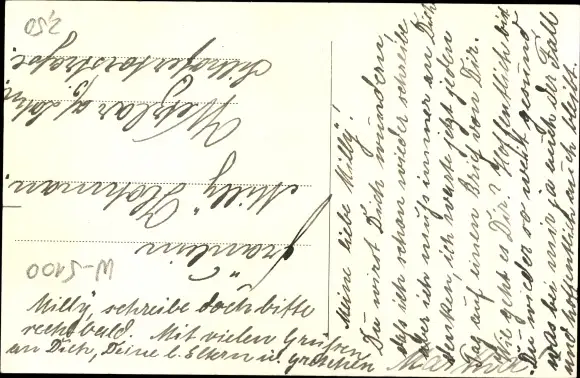 Meine liebe Milly!
Du wirst Dich wundern,
daß ich schon wieder schreibe
aber ich muß immer an Dich
denken, ich warte jetzt jeden
Tag auf einen Brief von Dir.
Wie geht es Dir? Hoffentlich bist
Du wieder so weit gesund
was bei mir ja auch der Fall
und hoffentlich auch bleibt.
Milly, schreibe doch bitte
recht bald. Mit vielen Grüßen
an Dich, Deine l. Eltern u. Gretchen
Martha
Fräulein
Milly Hohmann.
Wetzlar a/ Lahn.
Silhöfertorstraße.
W-5100
2,50